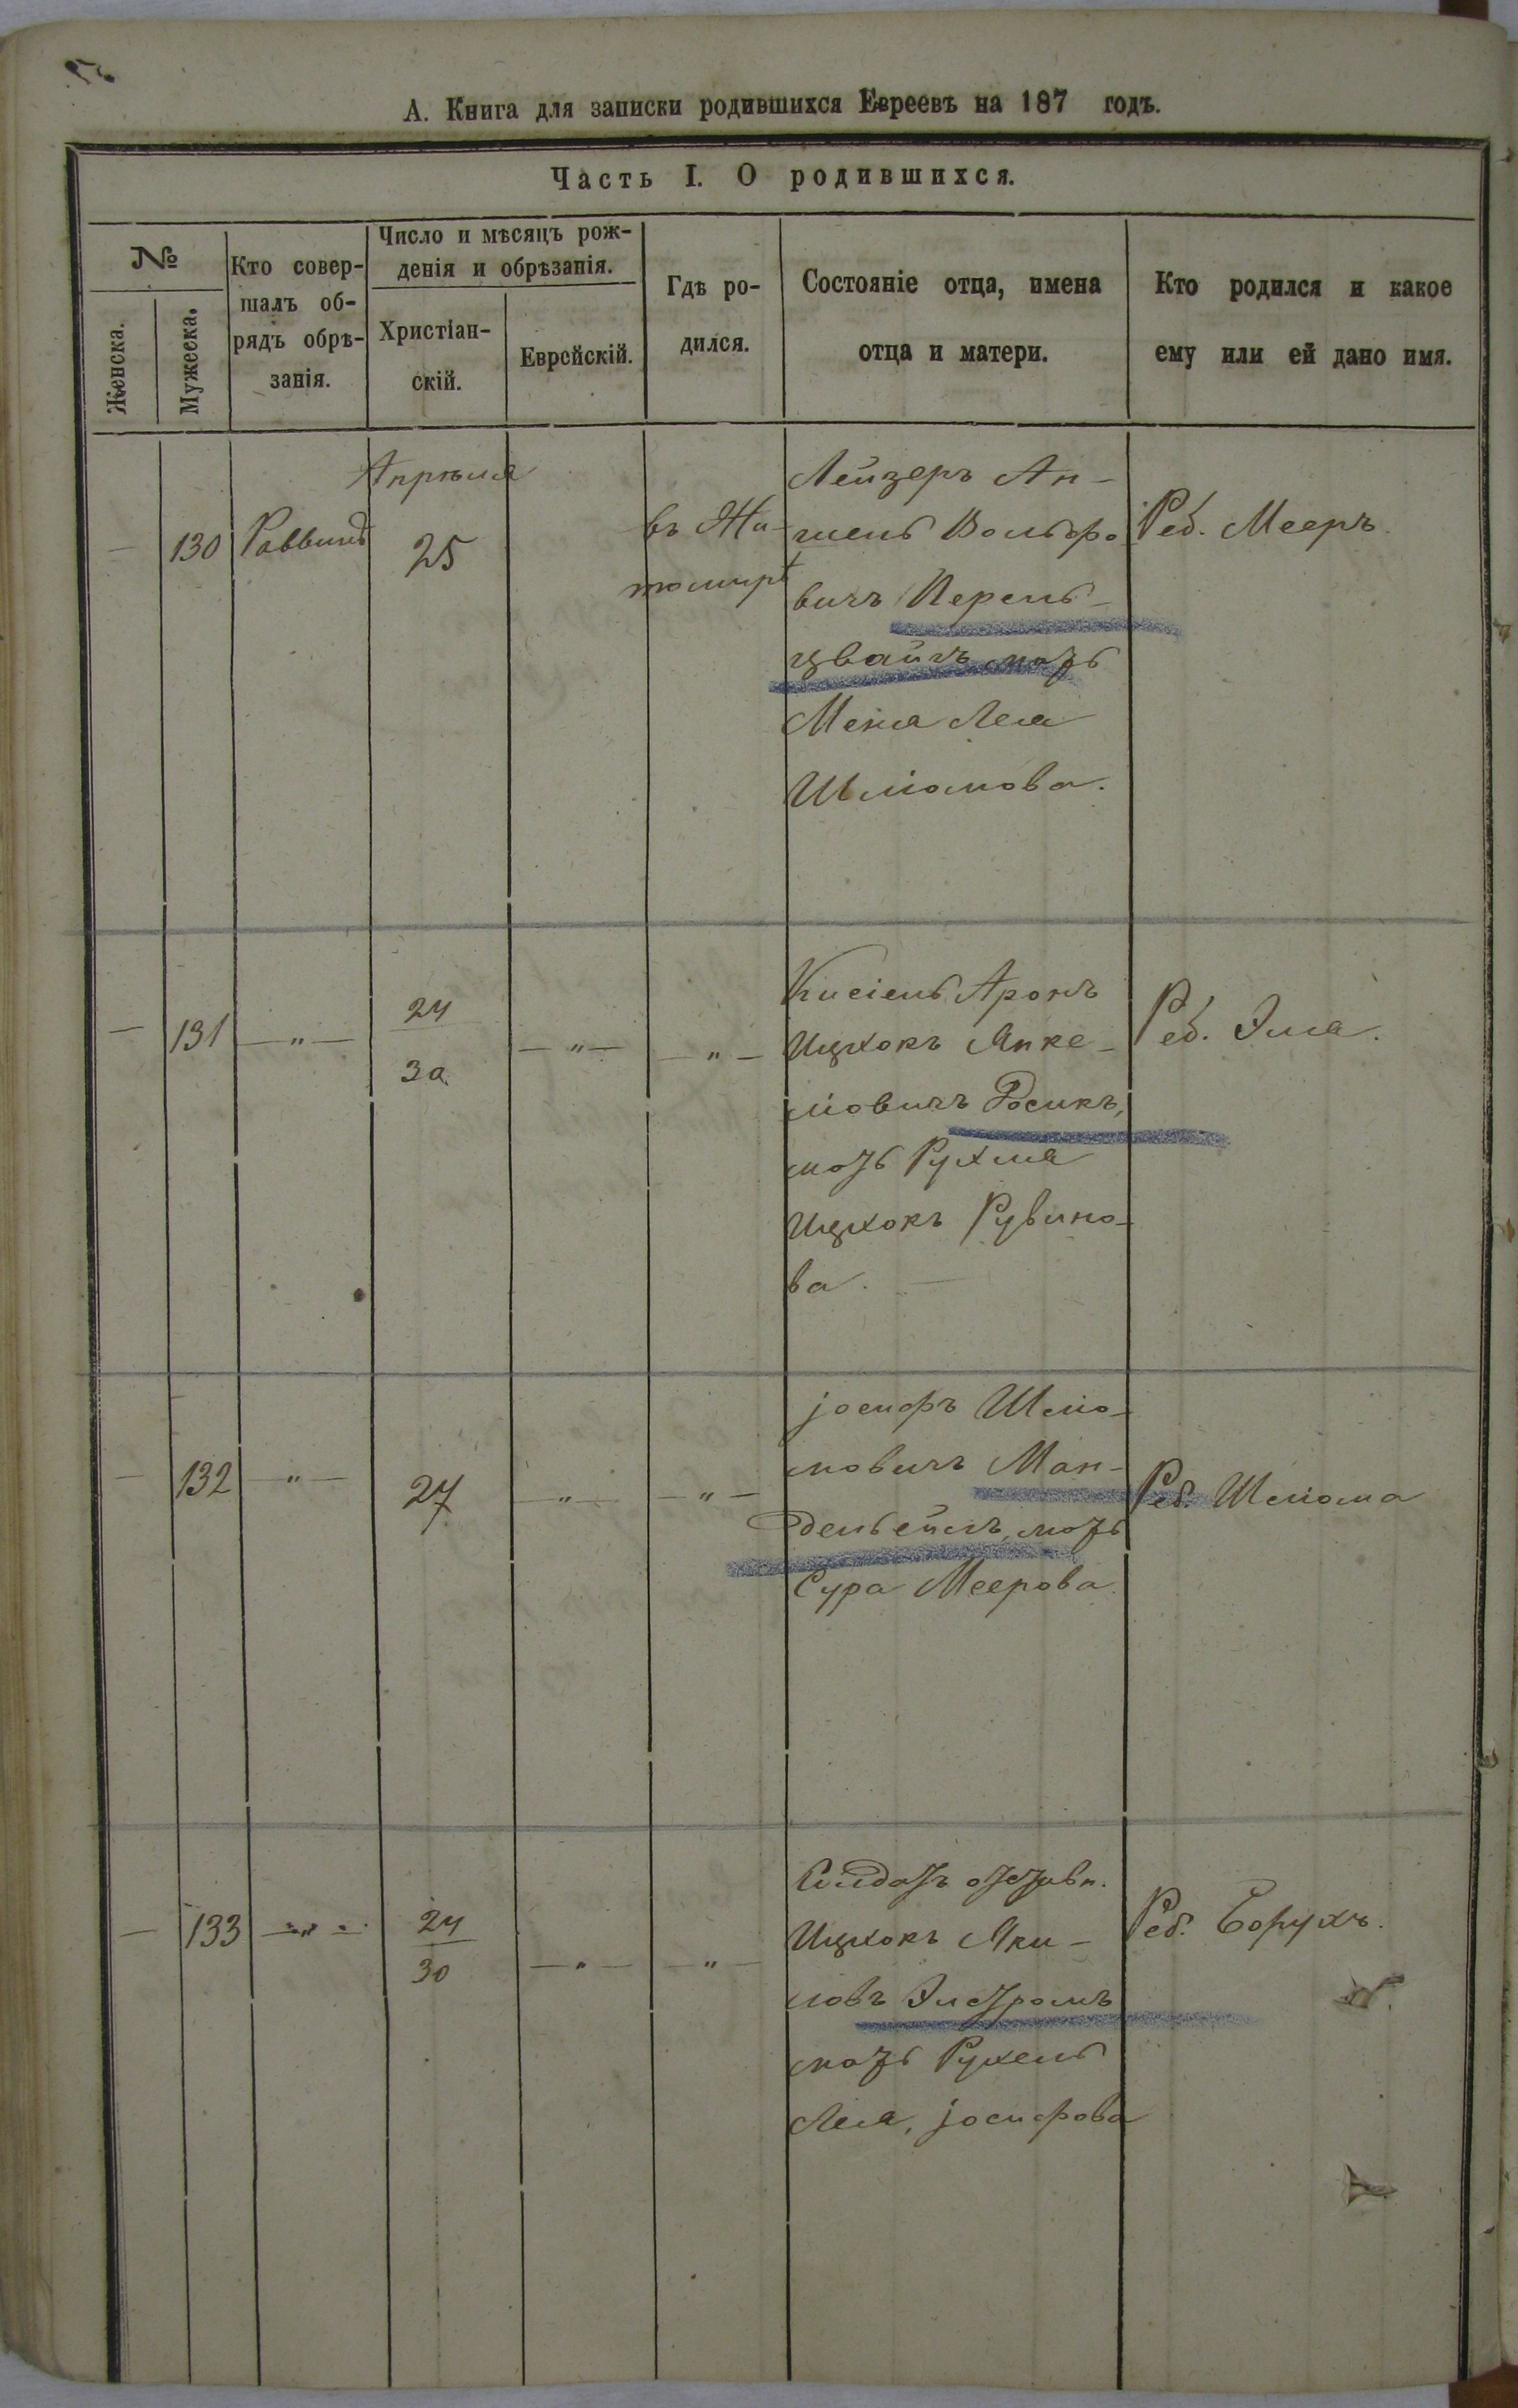 А. Книга для записки родившихся Евреевъ на 187 годъ.
Часть I. О родившихся.
№
Женска.
Мужеска.
Кто совер-
шалъ об-
рядъ обрѣ-
занія.
Число и мѣсяцъ рож-
денія и обрѣзанія.
Христіан-
скій.
Еврейскій.
Гдѣ ро-
дился.
Состояніе отца, имена
отца и матери.
Кто родился и какое
ему или ей дано имя.
—
130
Раввинъ
Апрѣля
25
въ Жи-
томирѣ
Лейзеръ Ан-
шель Вольфо
вичъ Перель-
цвайгъ мать
Меня Лея
Шліомова.
Реб. Мееръ
—
131
— „ —
24
30.
— „ —
— „ —
Кисіель Аронъ
Ицхокъ Янке-
ліовичъ Росикъ,
мать Рухля
Ицхокъ Рувино-
ва. —
Реб. Эля.
—
132
— „ —
27
— „ —
— „ —
Іосифъ Шліо-
мовичъ Ман-
дельейль, мать
Сура Меерова
Реб. Шліома
—
133
— „ —
24
30
— „ —
— „ —
Солдатъ отставн.
Ицхокъ Яки-
мовъ
мать Рухель
Лея, Іосифова
Реб. Борухъ.